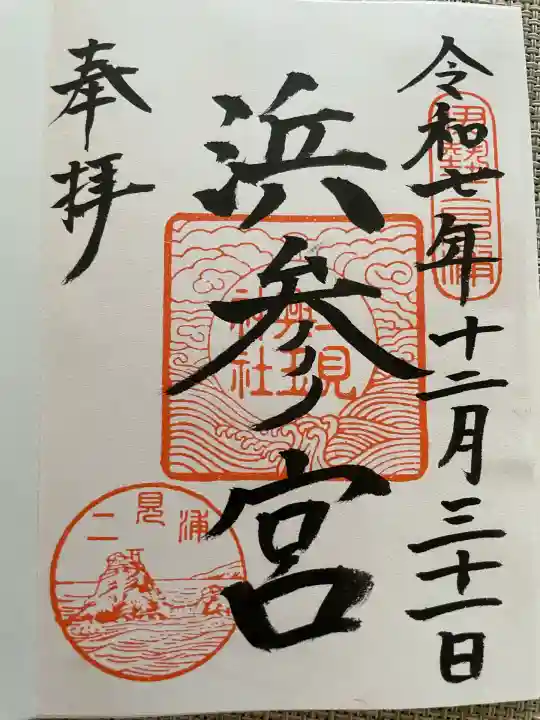 令和七年十二月三十一日
伊勢二見浦
浜参宮
二見興玉神社
奉拝
二見浦